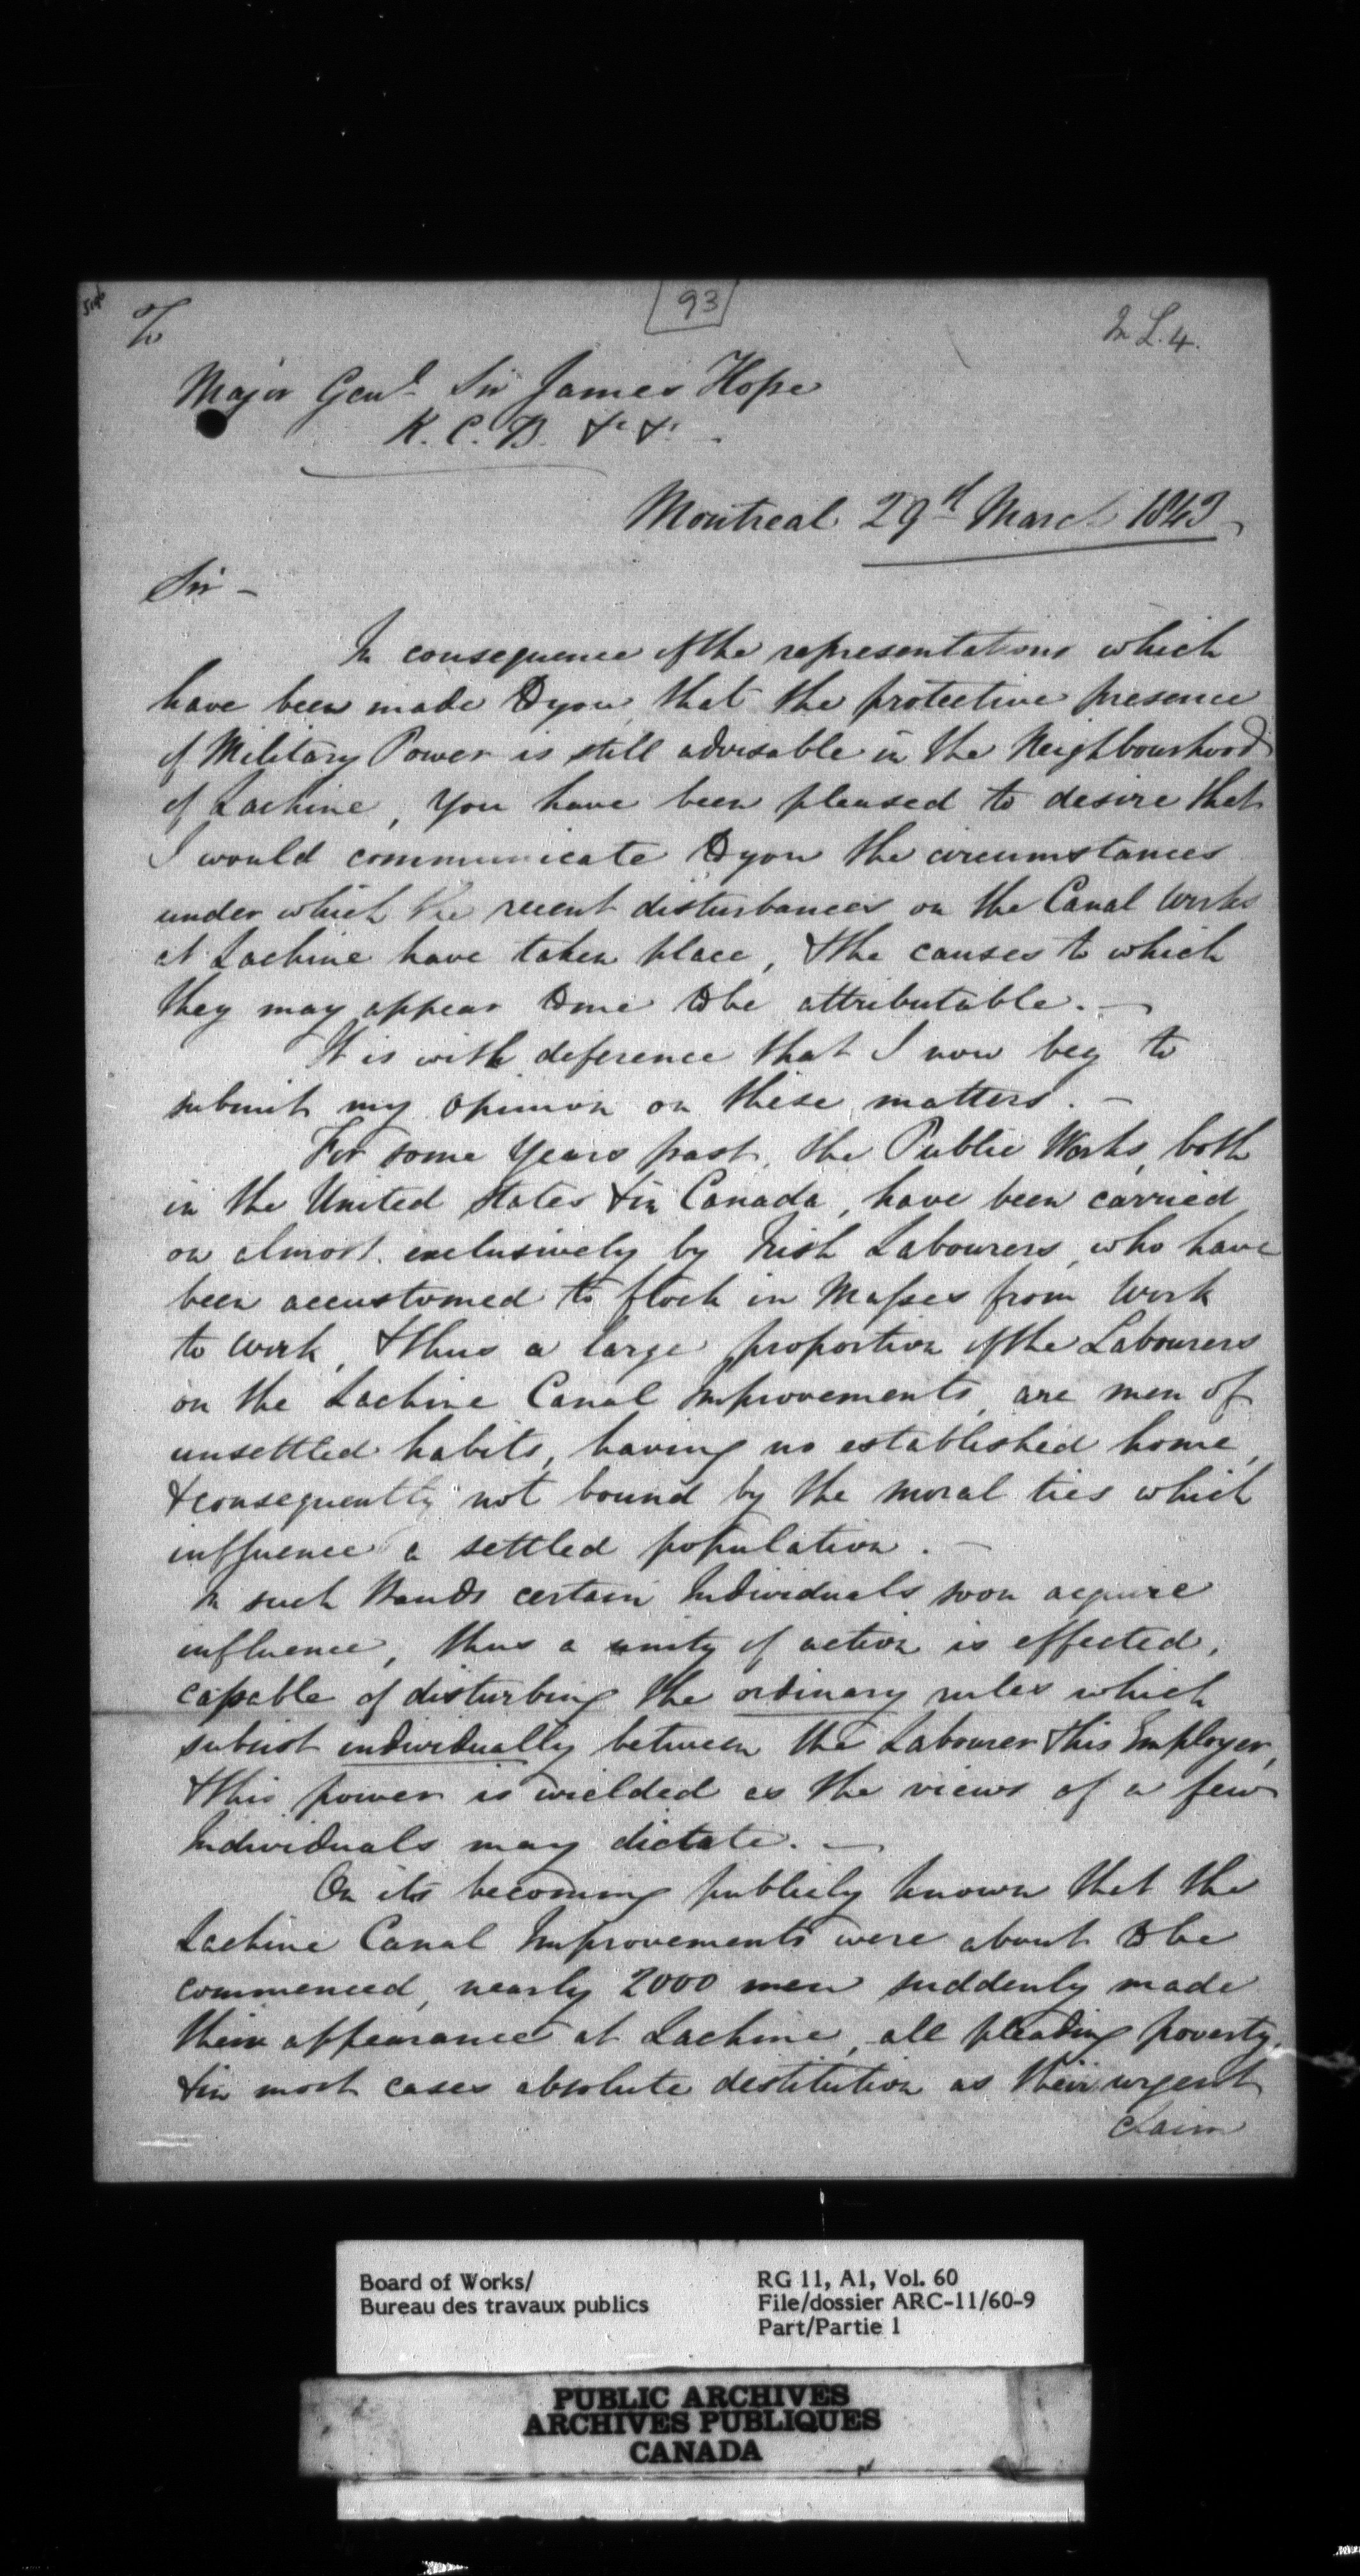 93
To
M L. 4.
Major Genl. Sir James Hope
K. C. B. &c &c.
Montreal 29th March 1843
Sir -
In consequence of the representations which
have been made to you, that the protective presence
of Military Power is still advisable in the Neighbourhood
of Lachine, You have been pleased to desire that
I would communicate to you the circumstances
under which the recent disturbances on the Canal Works
at Lachine have taken place, & the causes to which
they may appear to me to be attributable. -
It is with deference that I now beg to
submit my opinion on these matters. -
For some Years past, the Public Works, both
in the United States & in Canada, have been carried
on almost exclusively by Irish Labourers, who have
been accustomed to flock in Masses from Work
to Work, & thus a large proportion of the Labourers
on the Lachine Canal Improvements, are men of
unsettled habits, having no established home,
& consequently not bound by the moral ties which
influence a settled population. -
In such Bands certain Individuals soon acquire
influence, thus a unity of action is effected,
capable of disturbing the ordinary rules which
subsist individually between the Labourer & his Employer,
& this power is wielded as the views of a few
Individuals may dictate. -
On its becoming publicly known that the
Lachine Canal Improvements were about to be
commenced, nearly 2000 men suddenly made
their appearance at Lachine, all pleading poverty,
& in most cases absolute destitution as their urgent
claim
Board of Works/
Bureau des travaux publics
RG 11, A1, Vol. 60
File/dossier ARC-11/60-9
Part/Partie 1
PUBLIC ARCHIVES
ARCHIVES PUBLIQUES
CANADA